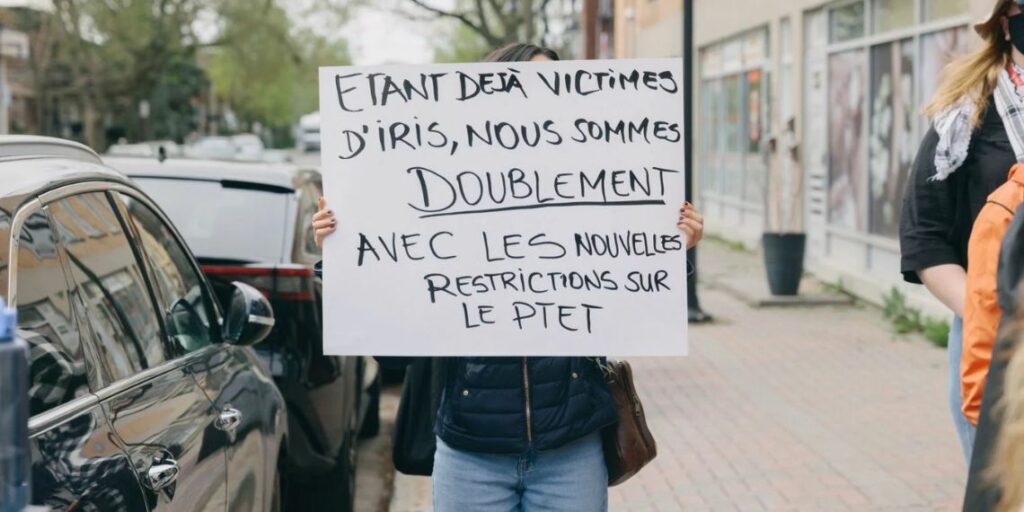 ETANT DEJÀ VICTIMES
D'IRIS, NOUS SOMMES
DOUBLEMENT
AVEC LES NOUVELLES
RESTRICTIONS SUR
LE PTET